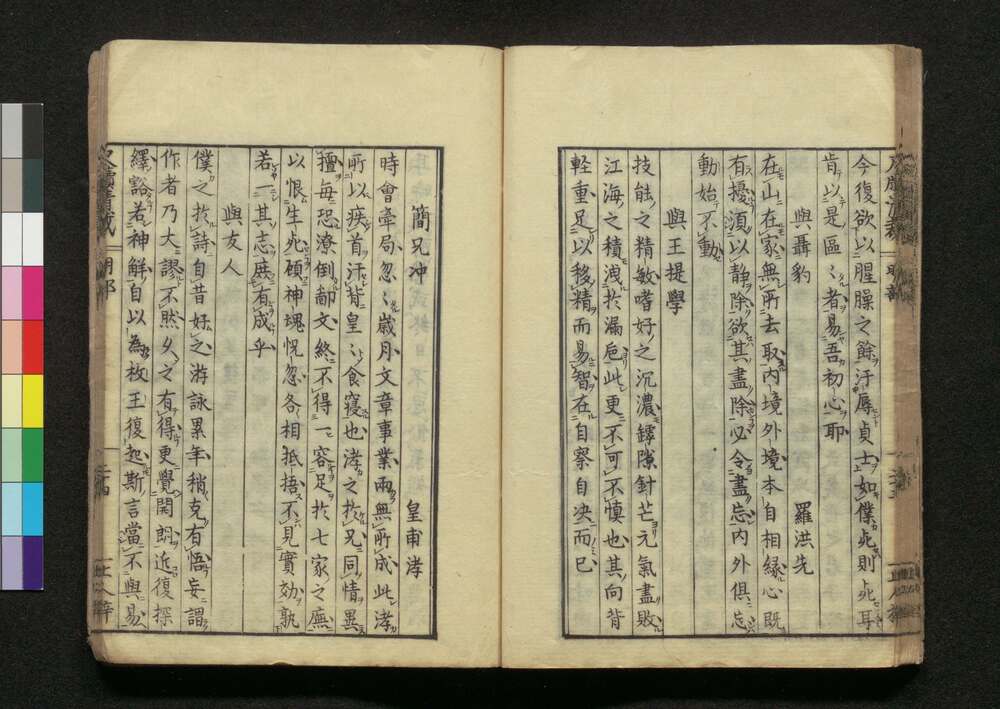 今復欲以腥臊之餘汙辱貞士如僕死則死耳
肯以是區〻者易吾初心耶
與聶豹
羅洪先
在山在家無所去取内境外境本自相縁心既
有擾須以静除欲其盡除必令盡忘内外俱忘
動始不動
與王提學
技能之精敏嗜好之沉濃鐸隙針芒元氣盡敗
江海之積洩於漏巵此更不可不慎也其向背
軽重足以移精而易智在自察自决而已
簡兄冲
皇甫涍
時會牽局忽〻歳月文章事業兩無所成此涍
所以疾首汗背皇〻食寝也涍之於兄同情異
擅毎恐潦倒鄙文終不得一容足於七家之廡
以恨生死頋神塊怳忽各相抵捂不見實効孰
若一其志庶有成乎
與友人
僕之於詩自昔好之游詠累年稍克有悟妄謂
作者乃大謬不然夂之有得更覺開朗近復探
繹谿若神解自以為枚王復起斯言當不與易